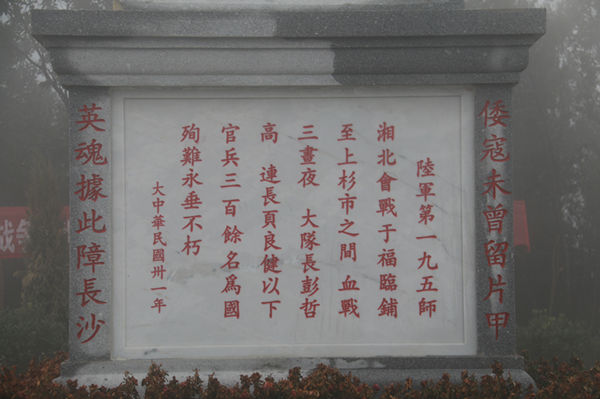 倭寇未曾留片甲
陸軍第一九五師
湘北會戰于福臨鋪
至上杉市之間 血戰
三晝夜 大隊長彭哲
高 連長頁良健以下
官兵三百餘名爲國
殉難永垂不朽
大中華民國卅一年
英魂據此障長沙
战争